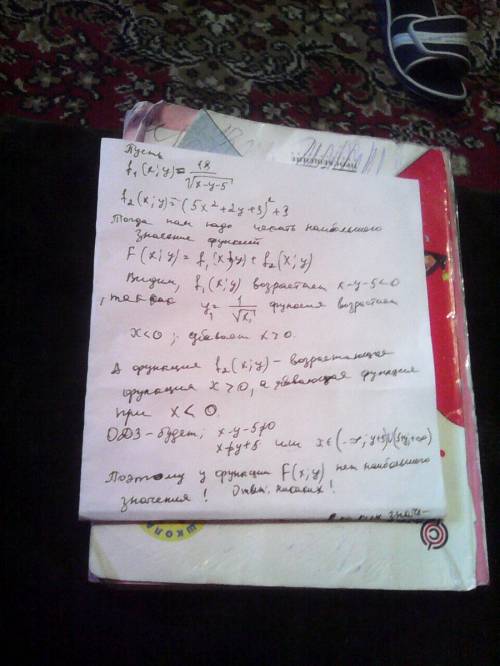 Пусть
f₁(x;y)=18/√x-y-5
f₂(x;y)=-(5x²+2y+3)²+3
Тогда нам надо искать наибольшего
значение функций
F(x;y)=f₁(x;y)+f₂(x;y)
Видим, f₁(x;y) возрастает x-y-5<0
, так как y₁=1/√x₁ функция возрастает
x<0; убывает x>0.
А функция f₂(x;y)-возрастающая
функция x>0, а убывающая функция
при x<0.
ОДЗ-будет; x-y-5≠0
x≠y+5 или x∈(-∞;y+5)∪(5+y;+∞)
Поэтому у функции F(x;y) нет наибольшего
значения! Ответ: никаких!
ШКОЛА